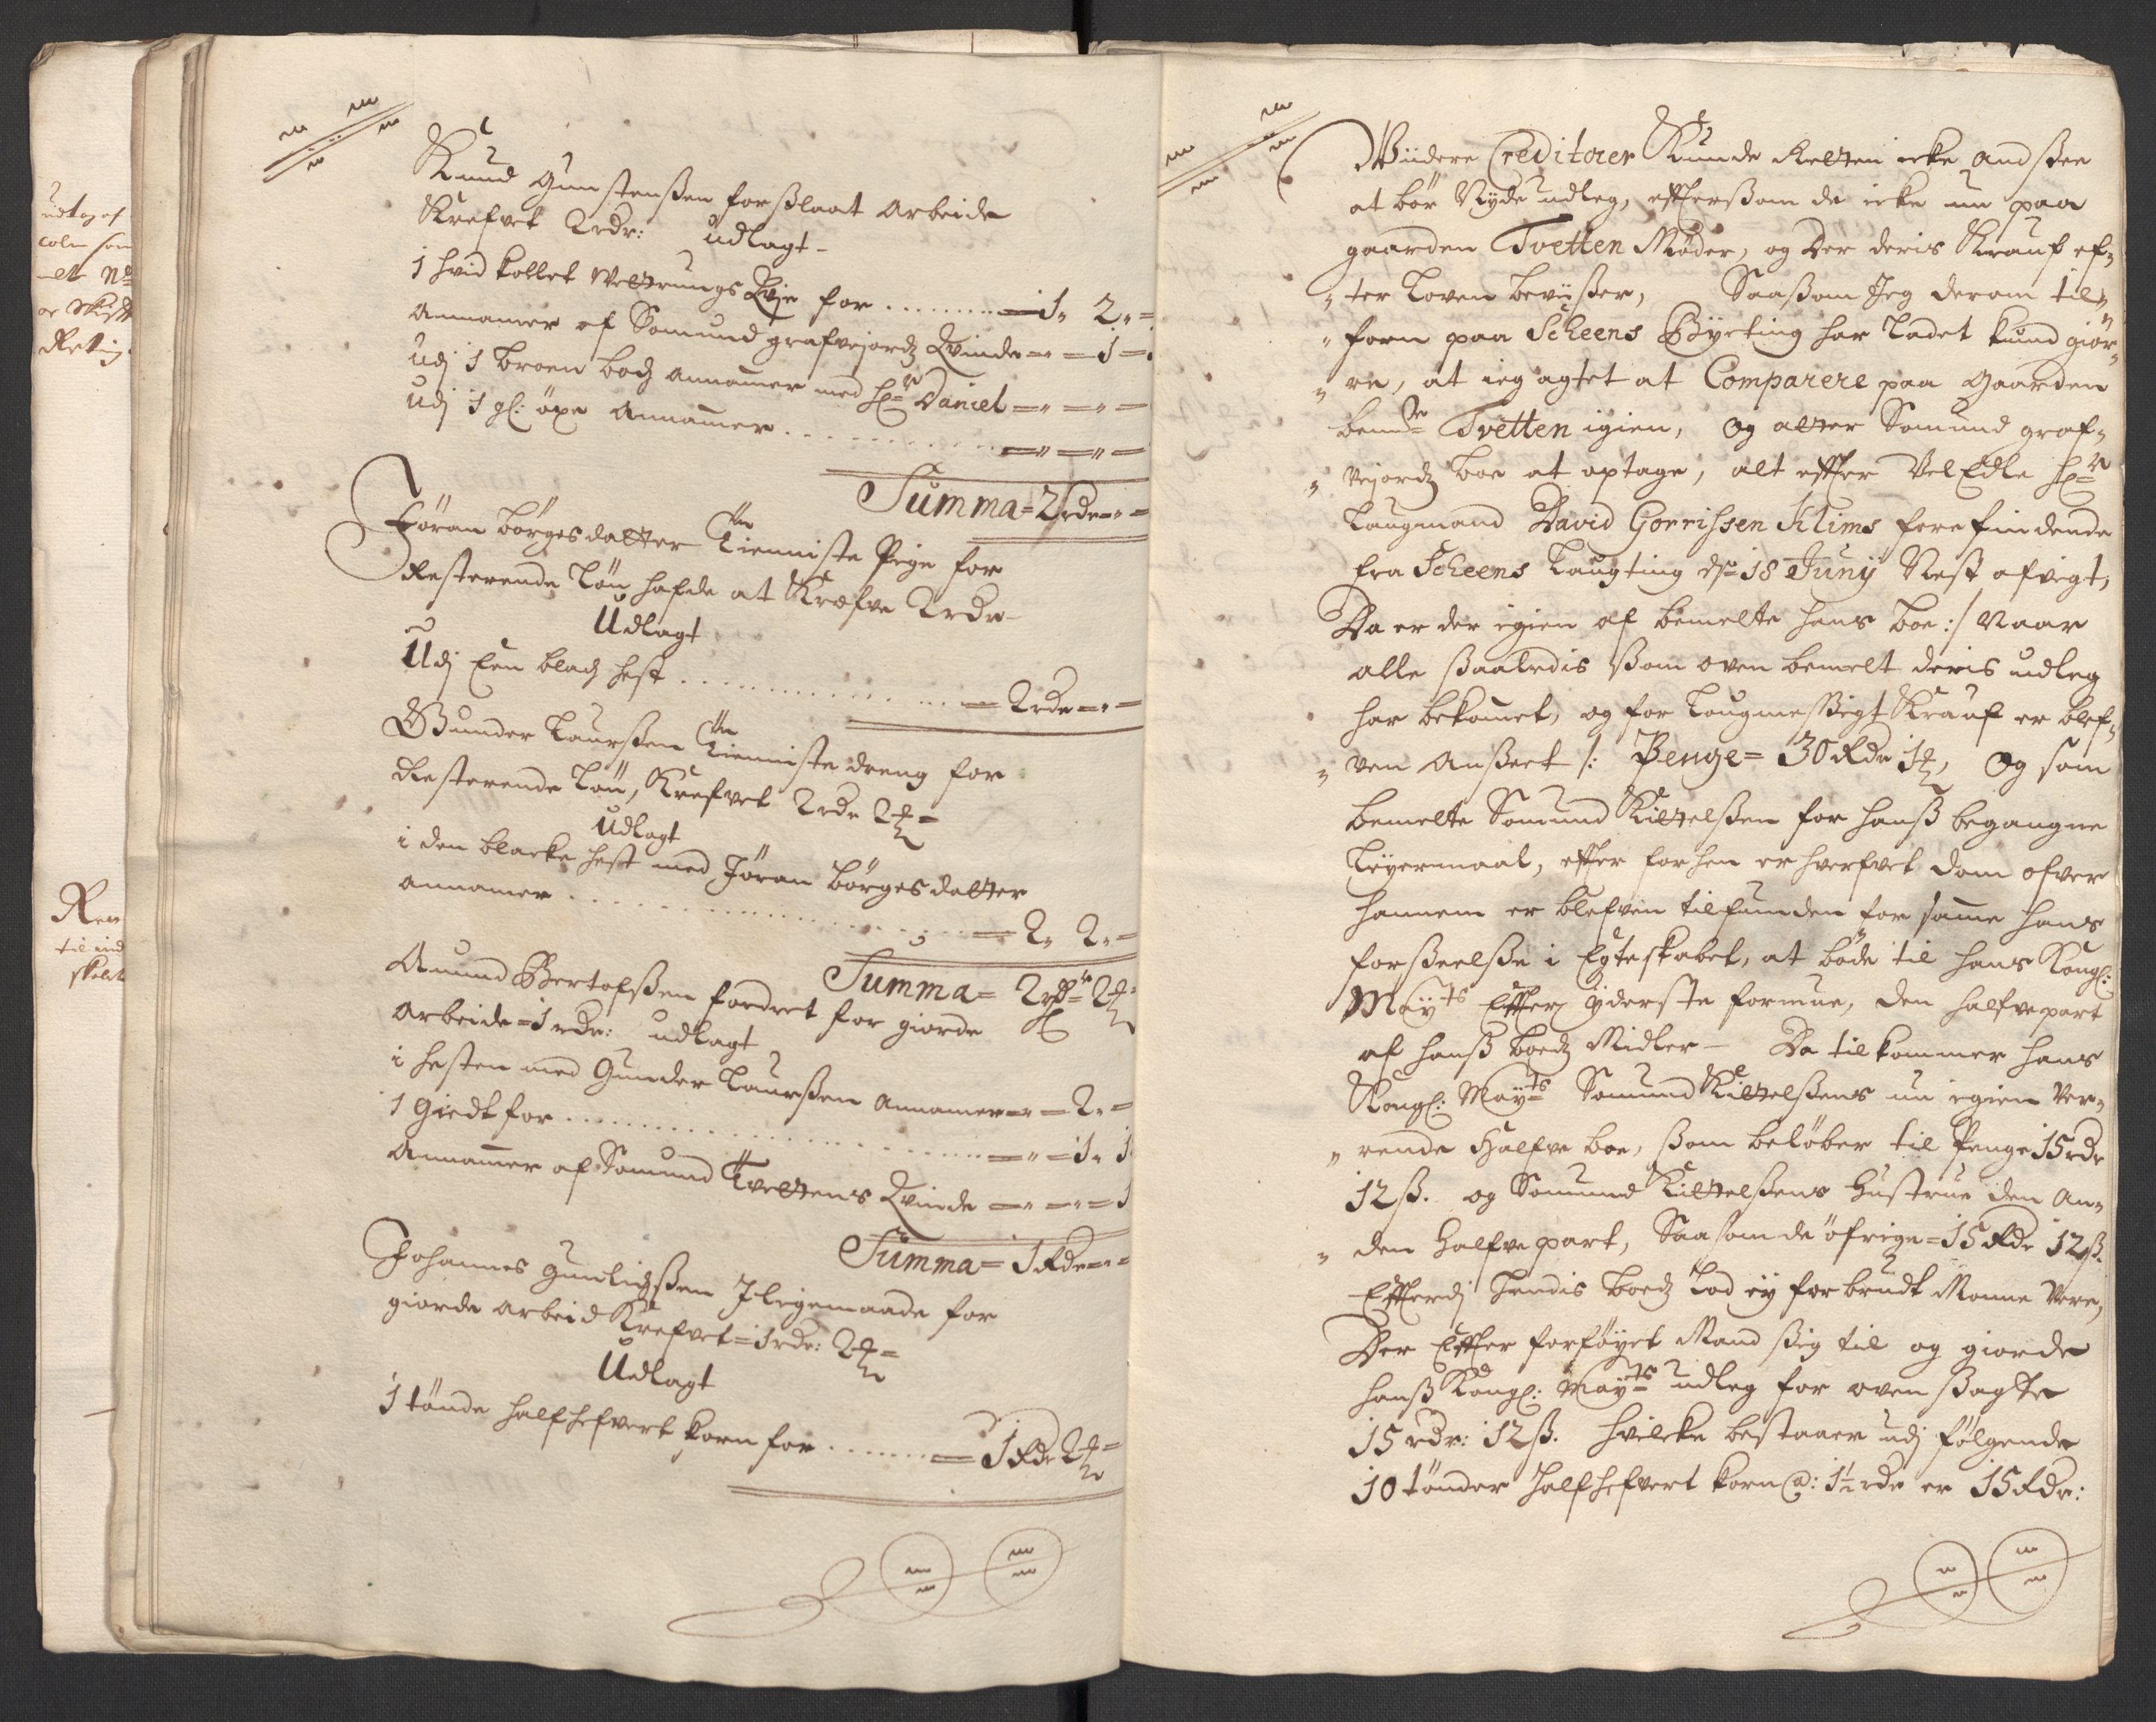 Knud Gunstensen forslaat arbeide
Krefvet 2rdr: udlagt-
1 hvid kollet vettrungs Qvie for ........ =1„ 2„=
annamer af Somund grafvejordz Qvinde =„=1=
udj 1 broen bock annammer med Hr Daniel =„=„=
udj 1 gl: öxe annammer ........ =„=„=
Summa=2rdr=„=
Jöran börgesdatter Tienniste Pige for
Resterende Lön hafde at Kræfve 2rdr-
Udlagt
Udj Een black hest ........ =2rdr=„=
Gunder Laurssen Tienniste dreng for
Resterende Lön, Krefvet 2rdr 2
Udlagt
i den blacke hest med Jöran börgesdatter
annamer ........ =2„ 2„=
Summa= 2rdr 2
Amund Bertofssen fordret for giorde
arbeide=1rdr: udlagt
i hesten med Gunder Laurssen annamer=„=2„=
1 Giedt for ........ =„=1„ 1
Annammer af Somund Tvettens Qvinde =„=„=1
Summa= 1Rdr=„=
Johannes Gunlichssen Jligemaade for
giorde arbeid Krefvet=1rdr: 2
Udlagt
1 tönde halfhefvert korn for ........ =1Rdr 2
Viidere Creditorer Kunde Retten icke andsee
at bör Nyde udleg, eftersom de icke nu paa
gaarden Tvetten Möder, og der deris Krauf ef„
„ter Loven bevisser, Saasom Jeg derom til„
„forn paa Scheens Byeting har ladet kund giör„
„re, at ieg agtet at Comparere paa Gaarden
bemte Tvetten igien, og atter Somund graf„
„vejordz boe at optage, alt effter VelEdle Hr
Laugmand David Gorrissen Klims forefindende
fra Scheens Laugting dse 18 Junij Nest afvigt,
Da er der igien af bemelte hans boe :/ Naar
alle saaledis som oven bemelt deris udleg
har bekomet, og for Laugmessigt Krauf er blef„
„ven ansseet /: Penge= 30Rdr 1, Og som
bemelte Somund Kittelssen for hans begangne
Leyermaal, effter forhen erhverfvet dom ofver
hannem er blefven tilfunden for samme hans
forseelsse i Egteskabet, at böde til hans Kongl:
Mayts Effter yderste formue, den halfvepart
af hans boedz Midler- Da tilkommer hans
Kongl: Mayts Somund Kittelssens nu igien ver„
„rende Halfve boe, som belöber til Penge 15rdr
12ß. og Somund Kittelssens Hustrue den an„
„den halfvepart, Saasom de öfrige=15Rdr 12ß.
Effterdj hendis boedz Lod ey forbrudt Monne Vere,
Der Effter forföyet Mand sig til og giorde
hans Kongl: Mayts udleg for oven sagte
15rdr: 12ß. hvilcke bestaaer udj fölgende
10 tönder halfhefvert korn a: 1½rdr er 15Rdr: